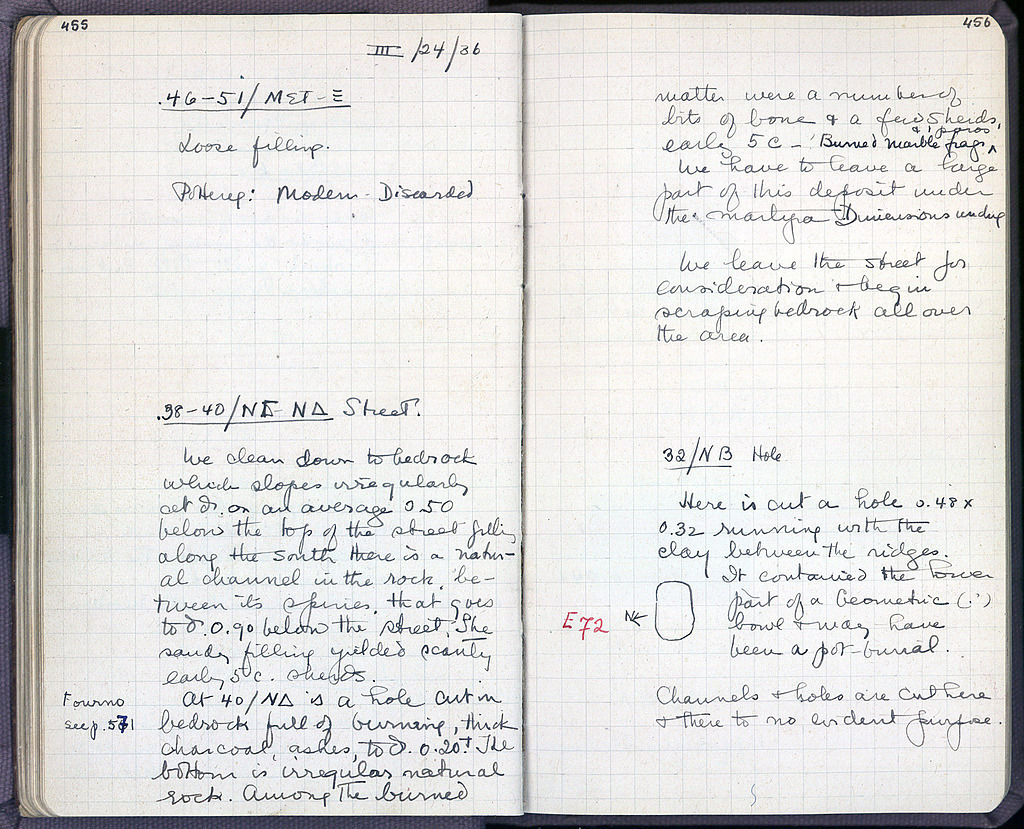 455
III/24/36
.46-51/ΜΣΤ-Ξ
Loose filling.
Pottery: Modern - Discarded
.38-40/ΝΓ-ΝΔ Street.
We clean down to bedrock
which slopes irregularly
at d. on an average 0.50
below the top of the street filling
along the south there is a natur-
al channel in the rock, be-
tween its spines, that goes
to d. 0.90 below the street. The
sandy filling yielded scanty
early 5 c. sherds.
Fourno
see p. 571
At 40/ΝΔ is a hole cut in
bedrock full of burning, thick
charcoal, ashes, to d. 0.20. The
bottom is irregular natural
rock. Among the burned
456
matter were a number of
bits of bone & a few sherds,
early 5 c - Burned marble frags & poros
We have to leave a large
part of this deposit under
the martyra Dimensions under
We leave the street for
consideration & begin
scraping bedrock all over
the area.
32/ΝΒ Hole
Here is cut a hole 0.48 x
0.32 running with the
clay between the ridges.
It contained the lower
part of a Geometric (?)
bowl & may have
been a pot-burial.
E 72
N
Channels & holes are cut here
& there to no evident purpose.